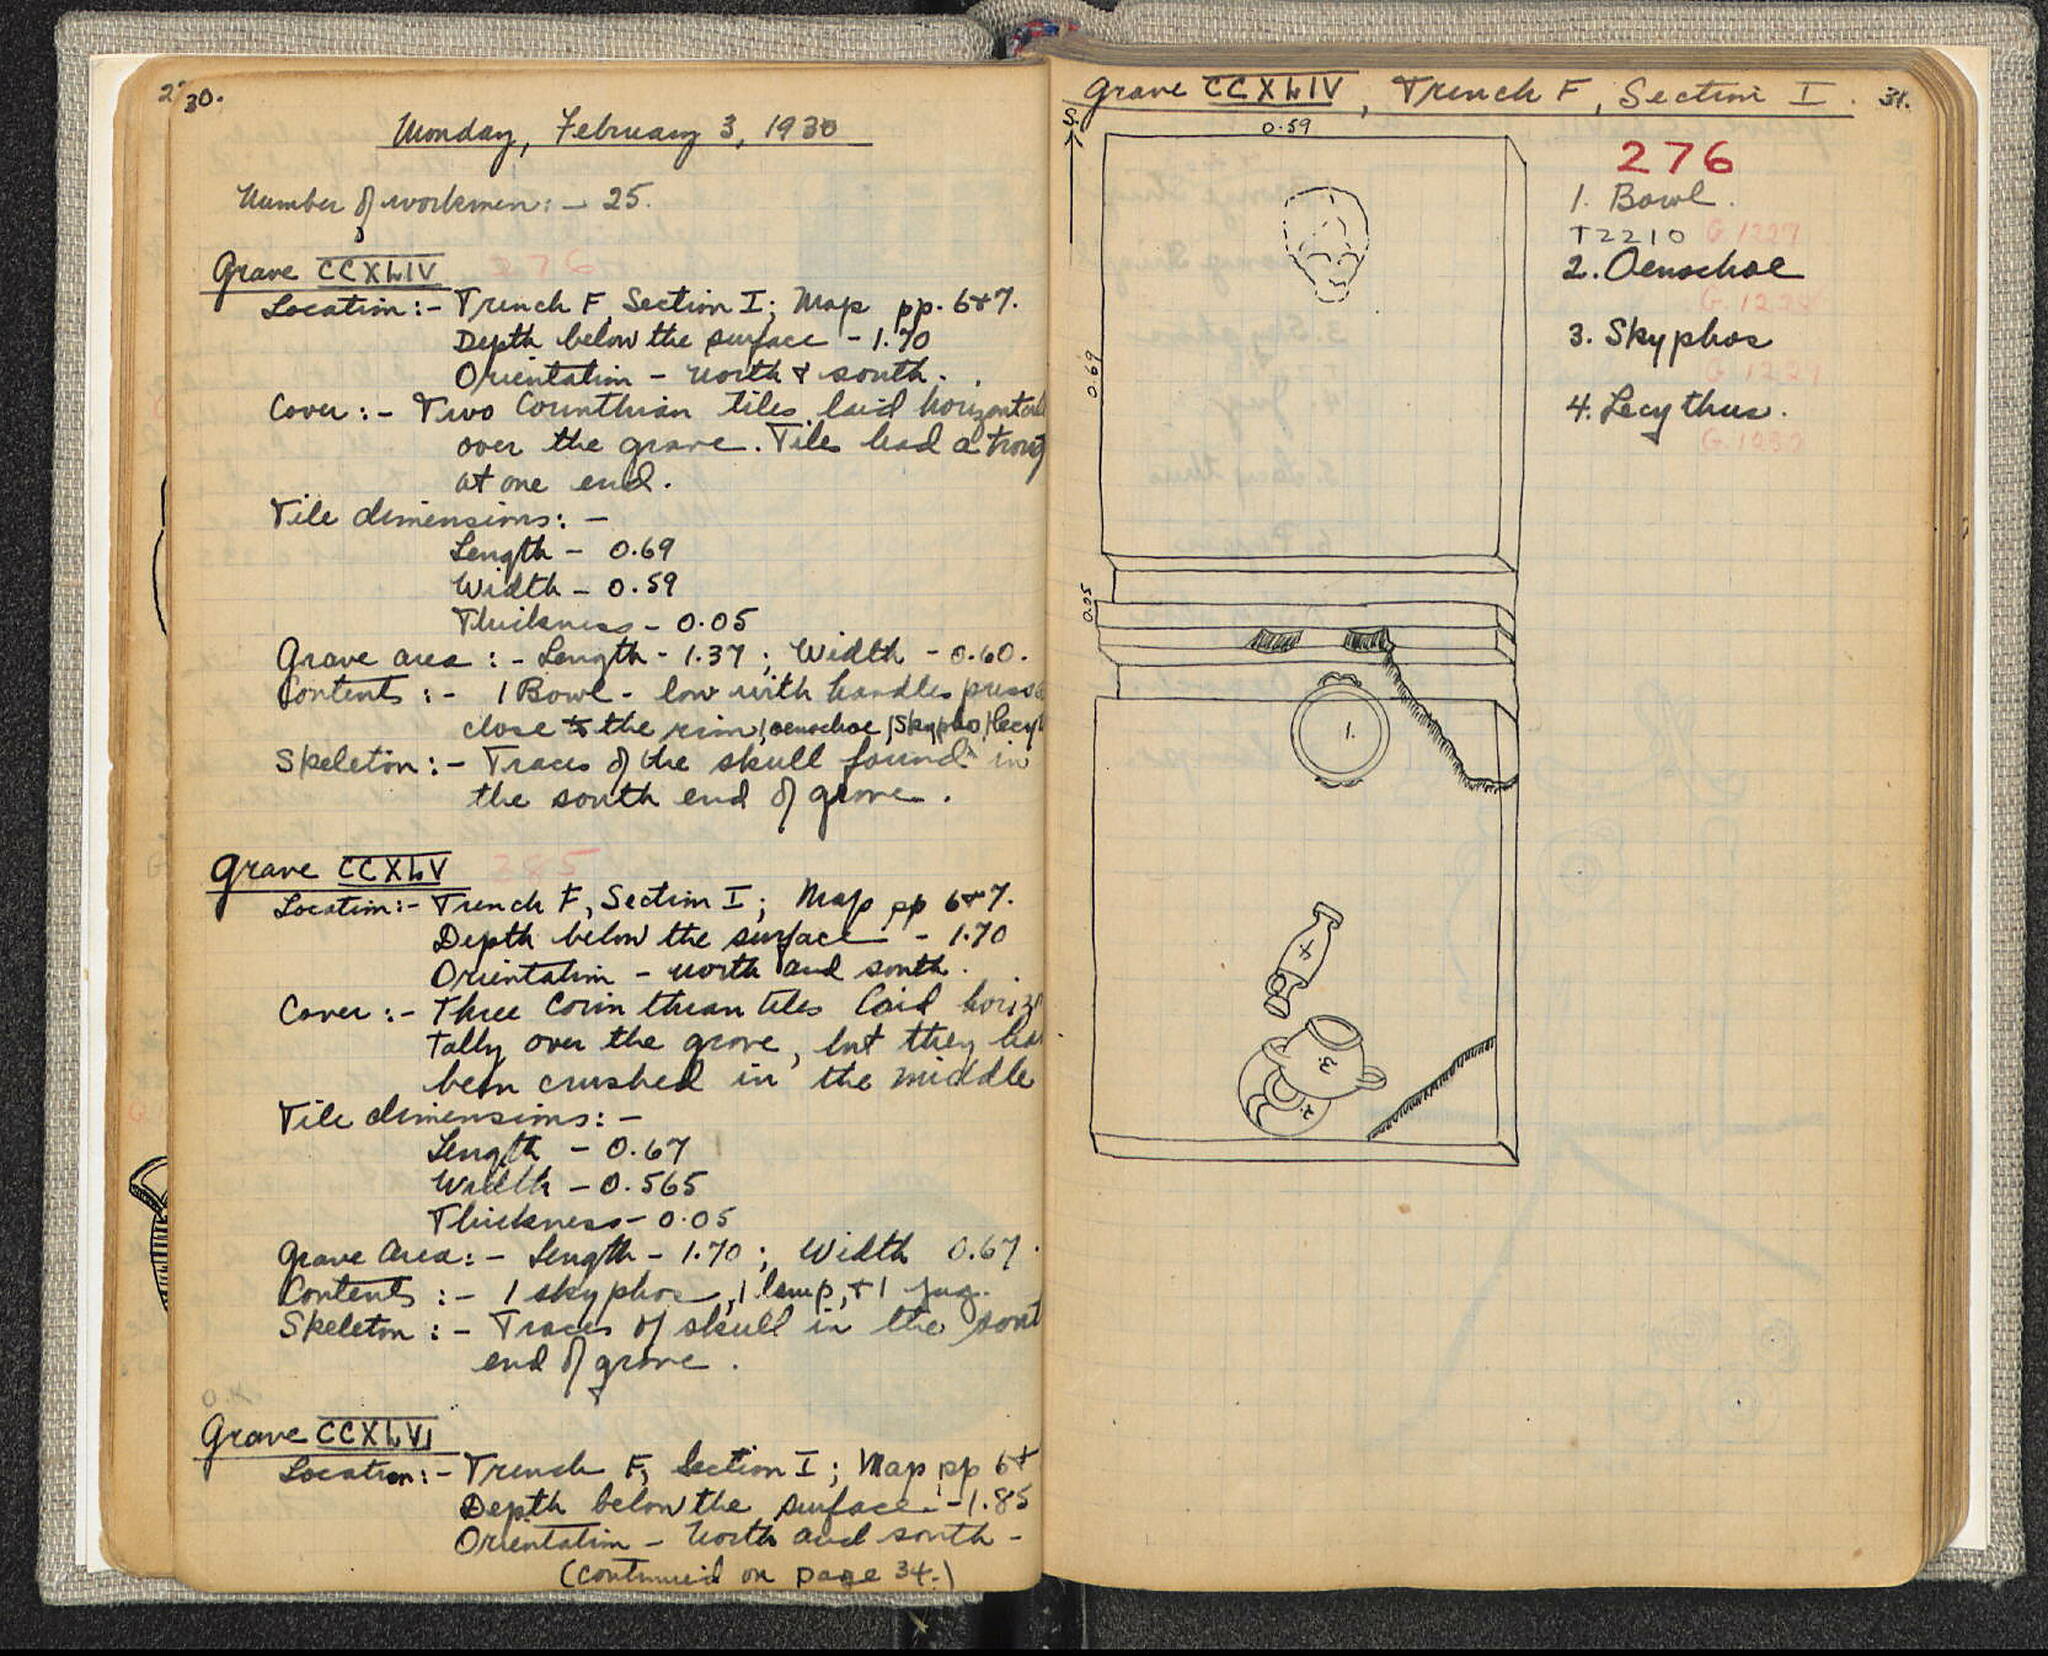 30.
Monday, February 3, 1930
Number of workmen: - 25.
Grave CCXLIV 276
Location:- Trench F, Section I; Map pp. 6+7.
Depth below the surface - 1.70
Orientation - North & south.
Cover:- Two Corinthian tiles laid
over the grave. Tiles had a
at one end.
Tile dimensions: -
Length - 0.69
Width - 0.59
Thickness - 0.05
Grave area: - Length - 1.37; Width - 0.60.
Contents:- 1 Bowl - low with handles
close to the rim, 1 oenochoe, 1 Skypho,
Skeleton:- Traces of the skull found in
the south end of grave.
Grave CCXLV 285
Location:- Trench F, Section I; Map pp 6+7.
Depth below the surface - 1.70
Orientation - North and south.
Cover:- Three Corinthian tiles laid
tally over the grave, but they
been crushed in the middle
Tile dimensions: -
Length - 0.67
Width - 0.565
Thickness - 0.05
Grave Area:- Length - 1.70; Width 0.67.
Contents:- 1 skyphos, 1 lamp, + 1 jug.
Skeleton:- Traces of skull in the
end of grave.
O.K.
Grave CCXLVI
Location:- Trench F, Section I; Map pp 6+
Depth below the surface - 1.85
Orientation - North and south -
(continued on page 34.)
Grave CCXLIV, Trench F, Section I. 31.
S.
0.59
0.69
0.05
276
1. Bowl.
T2210 G.1227
2. Oenochoe
3. Skyphos
4. Lecythus.
1.
4
3.
2.